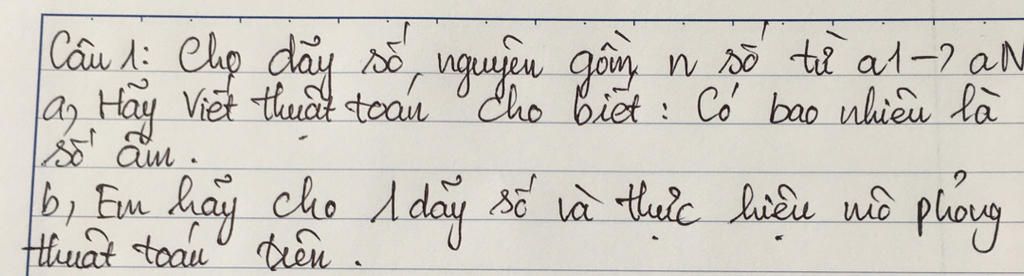 Câu 1: Cho dãy số nguyên gồm n số từ a1 -> aN
a, Hãy viết thuật toán cho biết: Có bao nhiêu là
số âm.
b, Em hãy cho 1 dãy số và thực hiện mô phỏng
thuật toán trên.